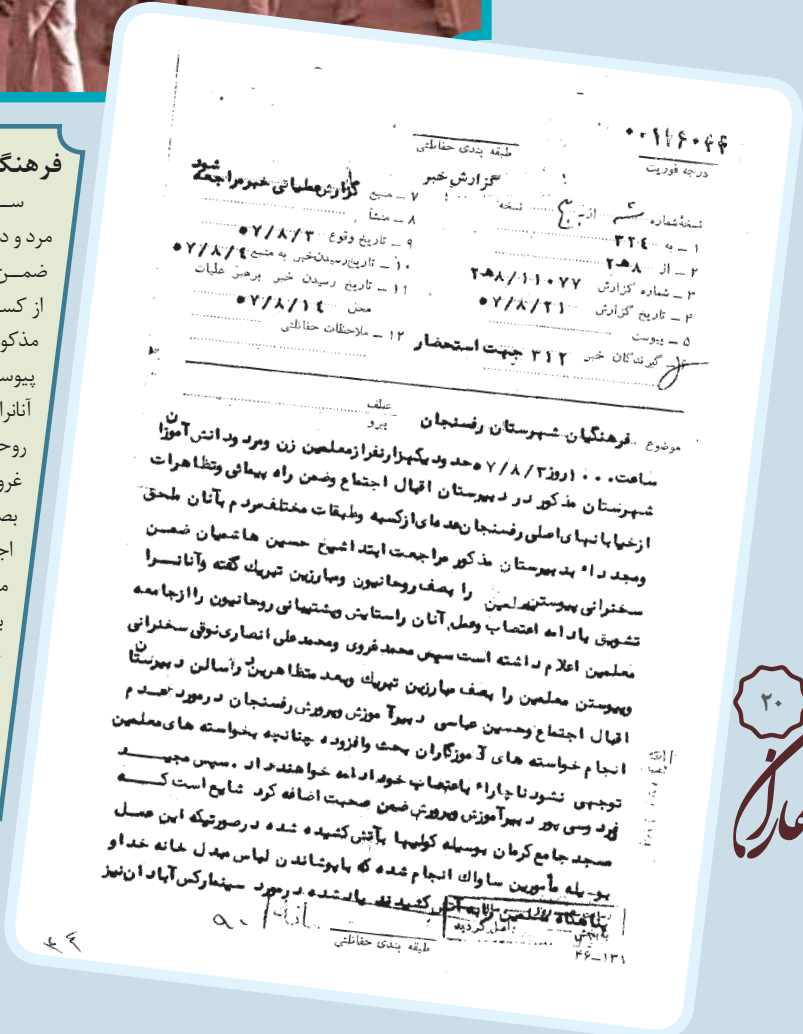 فرهنگ
مرد و د
ضمن
از کس
مذکو
پیوس
آنانرا
روح
غرو
بص
اج
۰۰۱۲۶۰۳۴
درجه فوریت
طبقه بندی حفاظتی
گزارش خبر
نسخهٔ شماره از نسخه
۱ – به ۳۲۴
۲ – از ۲ه‍۸
۳ – شماره گزارش ۲ه‍۸/۱۱۰۷۷
۴ – تاریخ گزارش ۵۷/۸/۲۱
۵ – پیوست
۶ – گیرندگان خبر ۳۱۲ جهت استحضار
۷ – منبع گزارش عملیاتی خبر مراجعه شود
۸ – منشأ
۹ – تاریخ وقوع ۵۷/۸/۳
۱۰ – تاریخ رسیدن خبر به منبع ۵۷/۸/۴
۱۱ – تاریخ رسیدن خبر برهبر عملیات
محل ۵۷/۸/۱۴
۱۲ – ملاحظات حفاظتی
موضوع فرهنگیان شهرستان رفسنجان
عطف
پیرو
ساعت ۱۰۰۰ روز ۵۷/۸/۳ حدود یکهزارنفر ازمعلمین زن ومرد ودانش آموزان
شهرستان مذکور در دبیرستان اقبال اجتماع وضمن راه پیمائی وتظاهرات
ازخیابانهای اصلی رفسنجان عده‌ای ازکسبه وطبقات مختلف مردم بآنان ملحق
ومجدداً به دبیرستان مذکور مراجعت ابتدا شیخ حسین هاشمیان ضمن
سخنرانی پیوستن معلمین را بصف روحانیون ومبارزین تبریك گفته وآنانرا
تشویق بادامه اعتصاب وعمل آنان راستایش وپشتیبانی روحانیون را ازجامعه
معلمین اعلام داشته است سپس محمد غروی ومحمدعلی انصاری نوقی سخنرانی
وپیوستن معلمین را بصف مبارزین تبریك وبعد متظاهرین درسالن دبیرستان
اقبال اجتماع وحسین عباسی دبیر آموزش وپرورش رفسنجان درمورد عدم
انجام خواسته های آموزگاران بحث وافزوده چنانچه بخواسته های معلمین
توجهی نشود ناچاراً باعتصاب خود ادامه خواهند داد . سپس مجید
پور دبیر آموزش وپرورش ضمن صحبت اضافه کرد شایع است که
مسجد جامع کرمان بوسیله کولیها بآتش کشیده شده درصورتیکه این عمل
بوسیله مأمورین ساواك انجام شده که باپوشاندن لباس مبدل خانه خدا و
پناهگاه مسلمین رابه آتش کشیدند یادشده درمورد سینما رکس آبادان نیز
طبقه بندی حفاظتی
۴۶–۱۳۱
۲۰